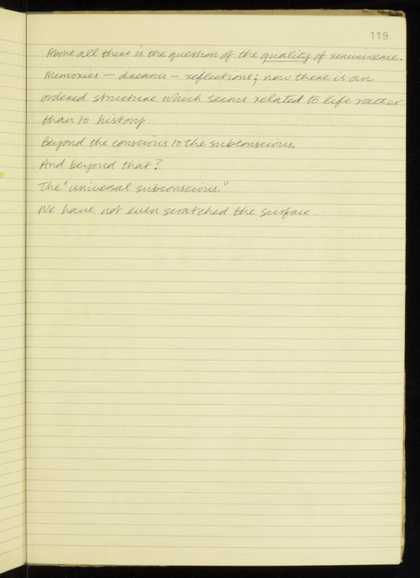 119
Above all there is the question of the quality of reminiscence.
Memories — dreams — reflections; now there is an
ordered structure which seems related to life rather
than to history.
Beyond the conscious to the subconscious.
And beyond that?
The "universal subconscious."
We have not even scratched the surface.